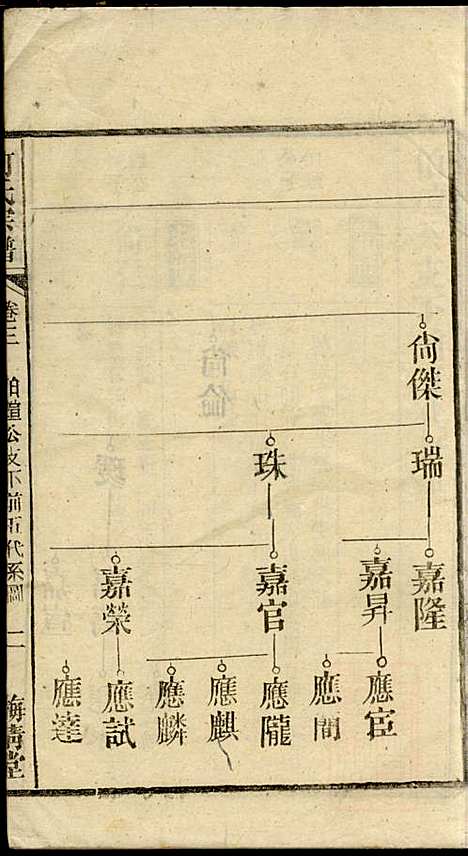 尙傑
瑞
珠
嘉隆
嘉昇
嘉官
嘉榮
應宦
應間
應隴
應麒
應麟
應試
應達
氏宗譜
卷三
公支下前五代系圖
二